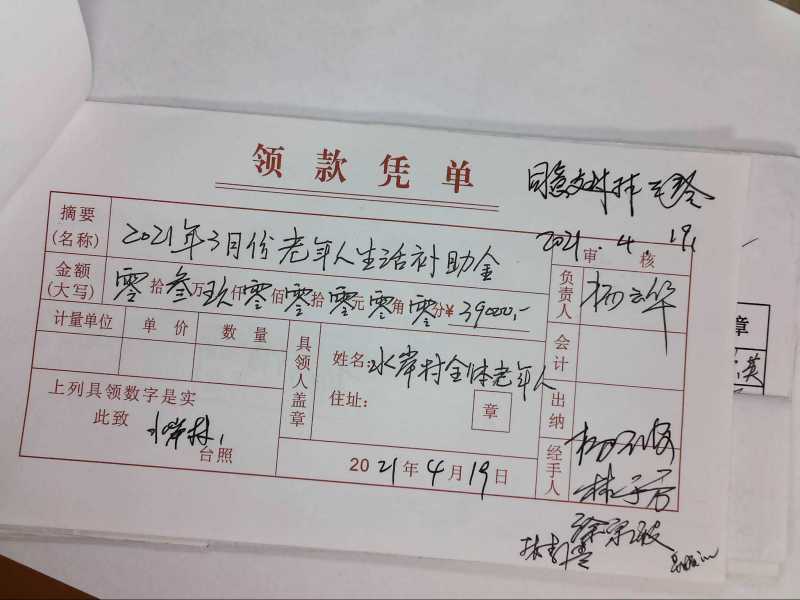 领款凭单
同意支付
2021.4.19
摘要(名称) 2021年3月份老年人生活补助金
审核
金额(大写) 零拾叁万玖仟零佰零拾零元零角零分¥39000,-
负责人 杨云华
计量单位 单价 数量
具领人盖章
姓名:水岸村全体老年人
住址:
章
会计
出纳
经手人
上列具领数字是实
此致 水岸村
台照
2021年4月19日
章
英